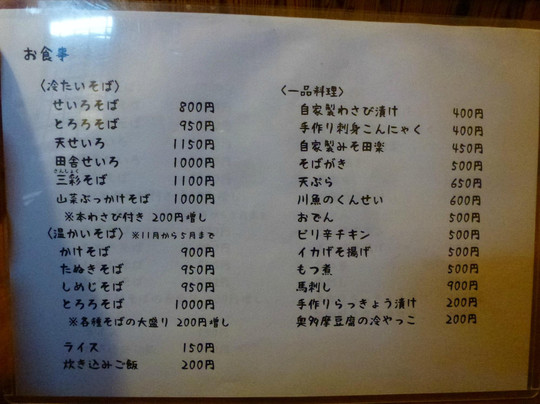 お食事
〈冷たいそば〉
せいろそば 800円
とろろそば 950円
天せいろ 1150円
田舎せいろ 1000円
さんしょく
三彩そば 1100円
山菜ぶっかけそば 1000円
※本わさび付き 200円増し
〈温かいそば〉 ※11月から5月まで
かけそば 900円
たぬきそば 950円
しめじそば 950円
とろろそば 1000円
※各種そばの大盛り 200円増し
ライス 150円
炊き込みご飯 200円
〈一品料理〉
自家製わさび漬け 400円
手作り刺身こんにゃく 400円
自家製みそ田楽 450円
そばがき 500円
天ぷら 650円
川魚のくんせい 600円
おでん 500円
ピリ辛チキン 500円
イカげそ揚げ 500円
もつ煮 500円
馬刺し 900円
手作りらっきょう漬け 200円
奥多摩豆腐の冷やっこ 200円